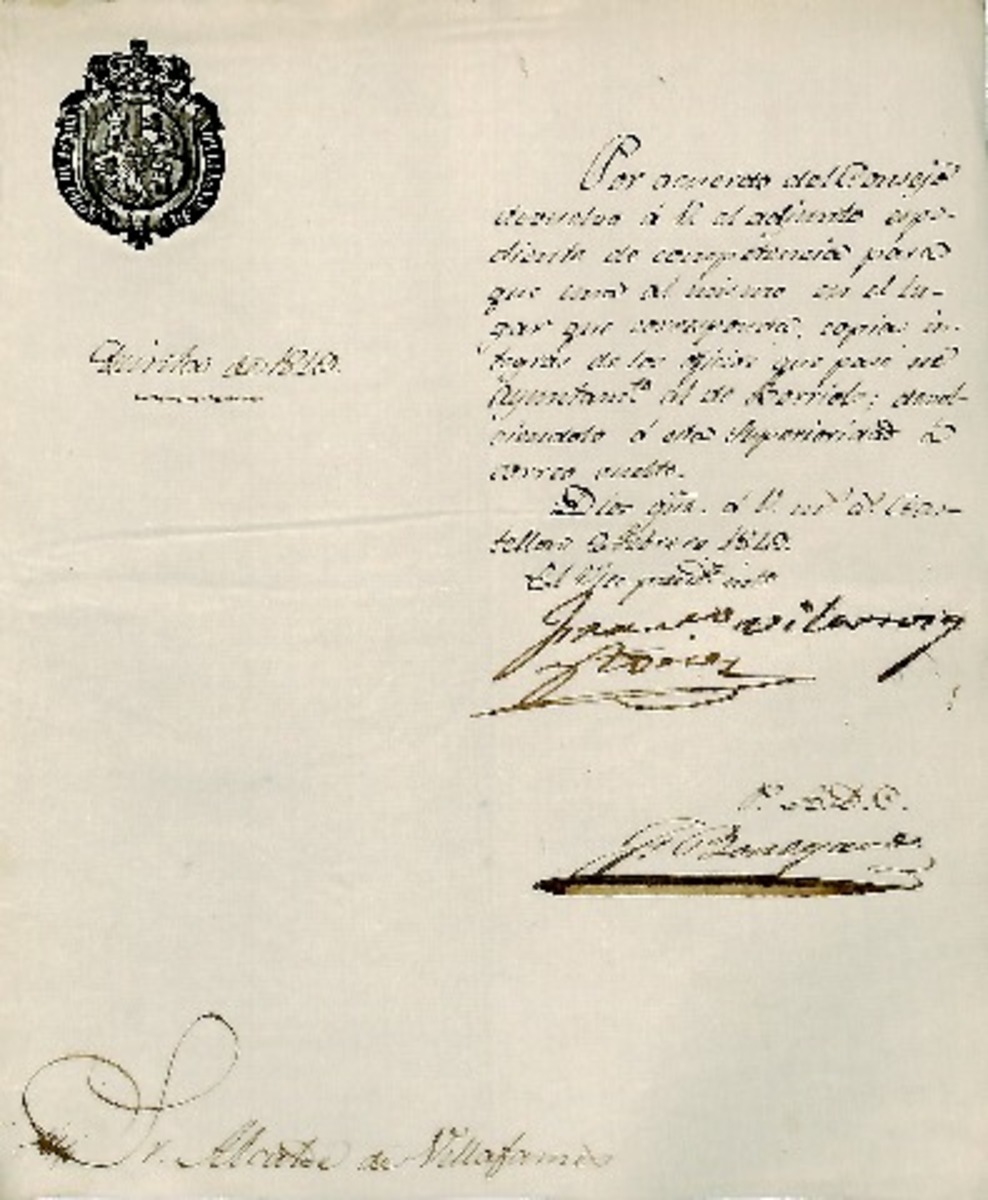 Quintas de 1849.
Por acuerdo del Consejo
devuelvo á V. el adjunto espe-
diente de competencia para
que una al mismo en el lu-
gar que corresponda, copias ín-
tegras de los oficios que pasó ese
Ayuntamto. al de Borriol; devol-
viendolo á esta Superioridad á
correo vuelto.
Dios gue. á V. ms. as. Cas-
tellon 2 Febrero 1849.
El Vice
P. A. D. C.
Sr. Alcalde de Villafamés